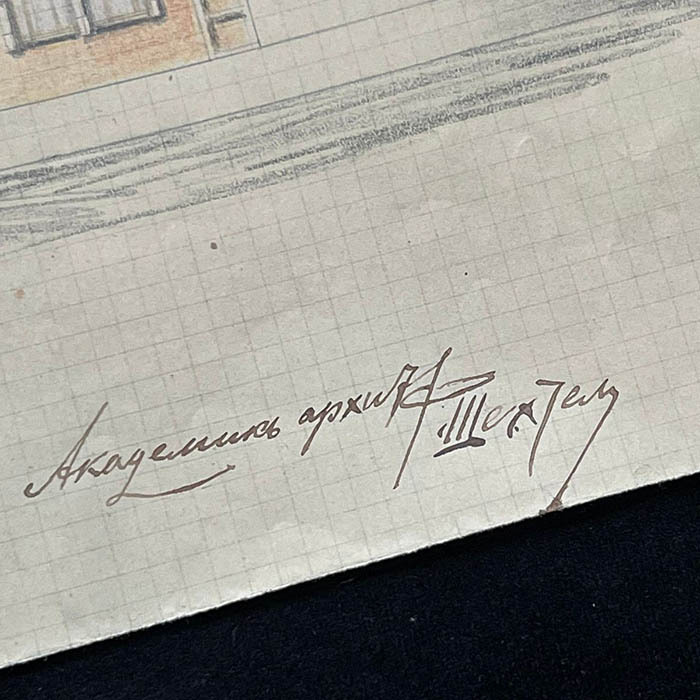 Академикъ архит Ф. Шехтель